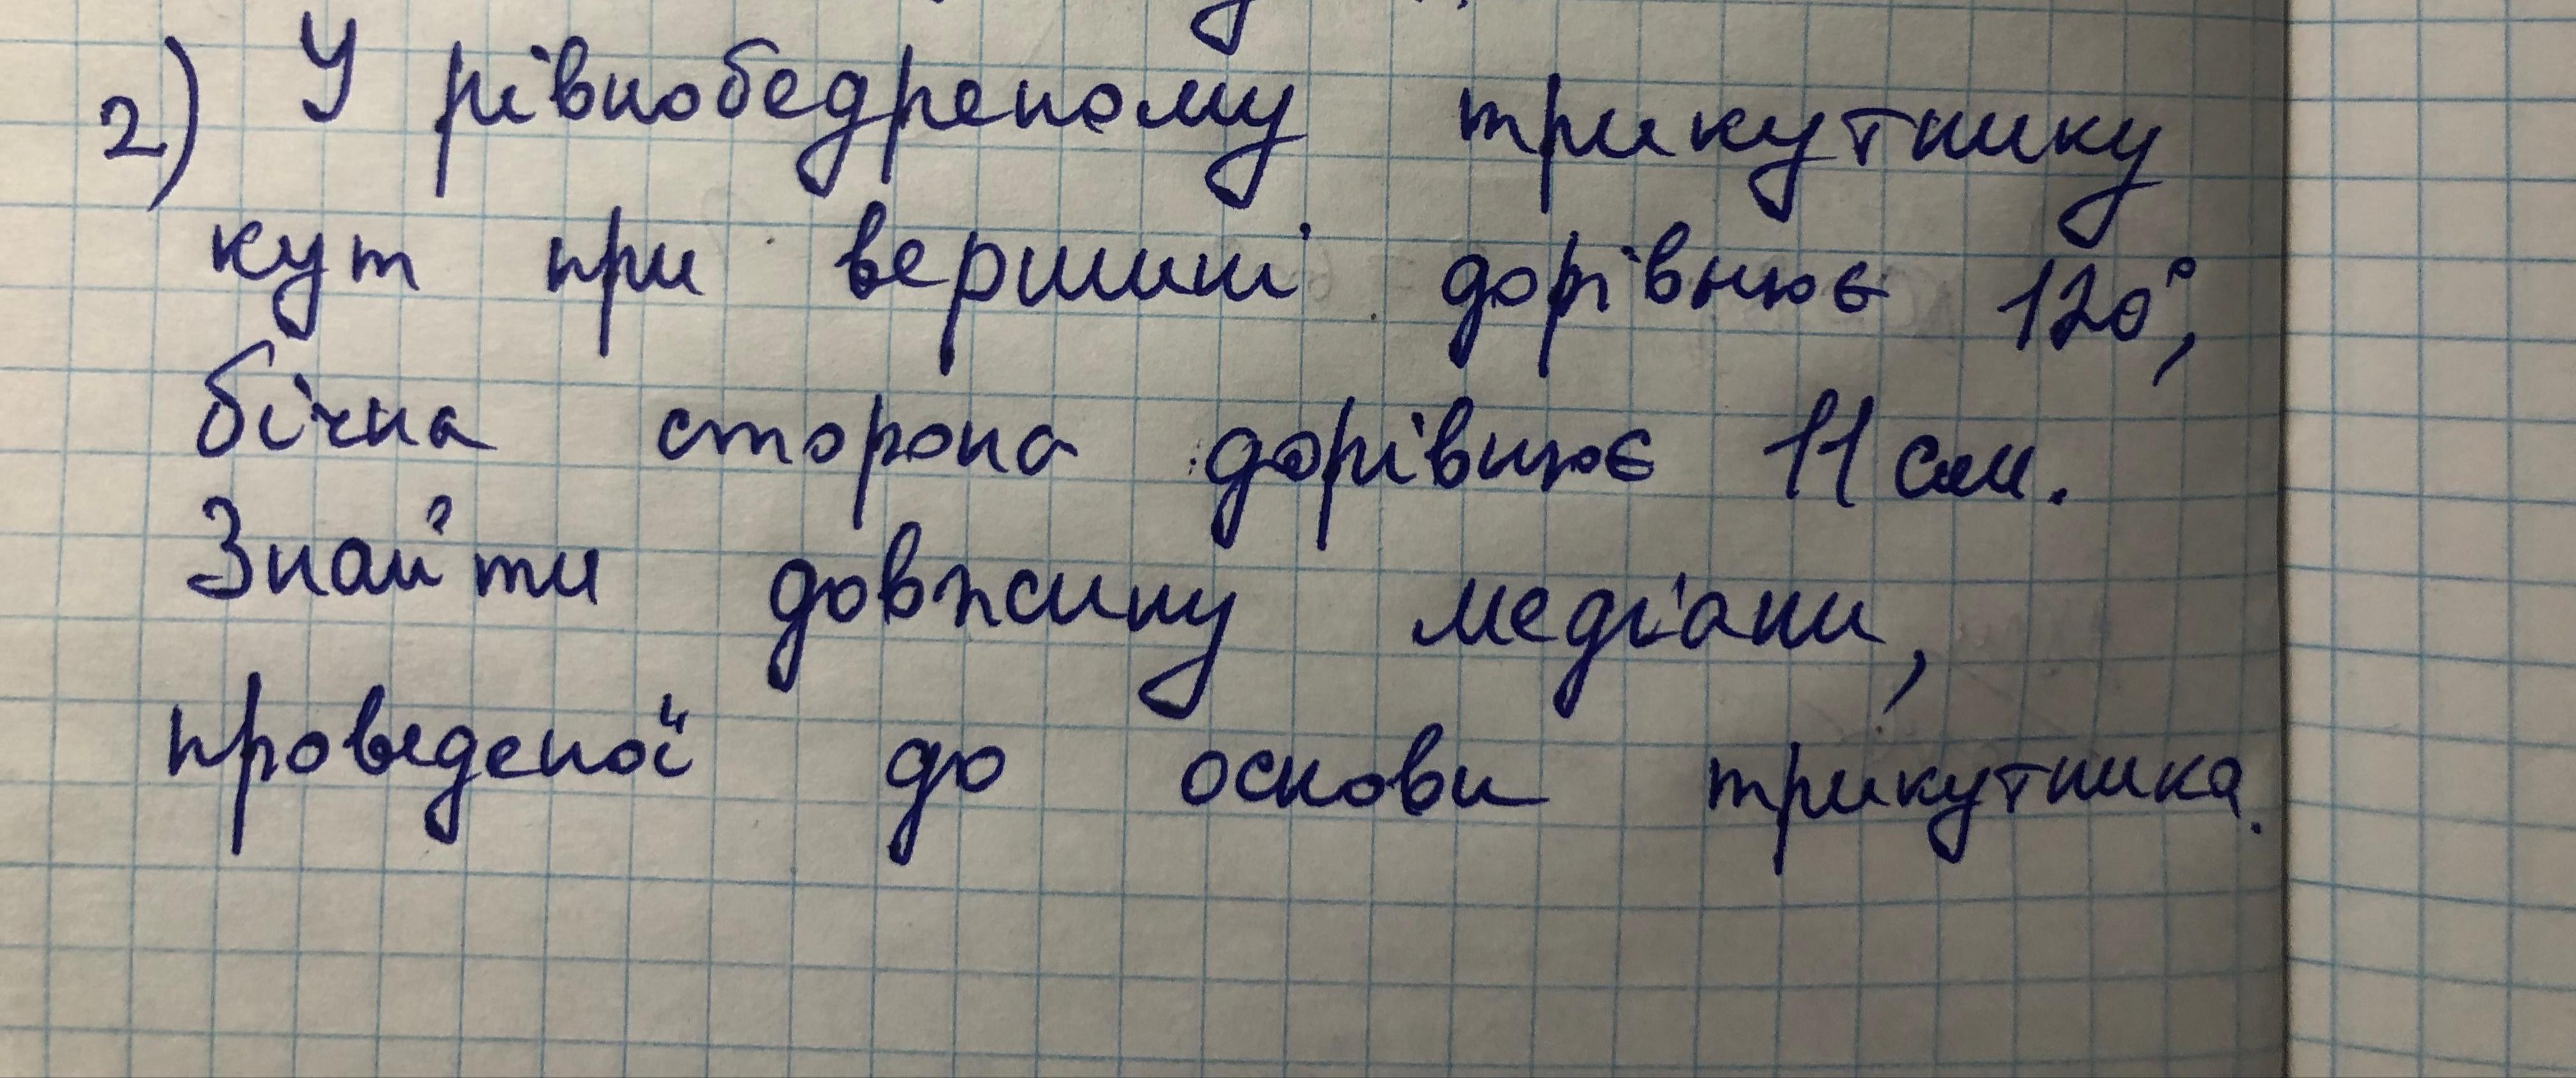 2) У рівнобедреному трикутнику
кут при вершині дорівнює 120°,
бічна сторона дорівнює 11 см.
Знайти довжину медіани,
проведеної до основи трикутника.